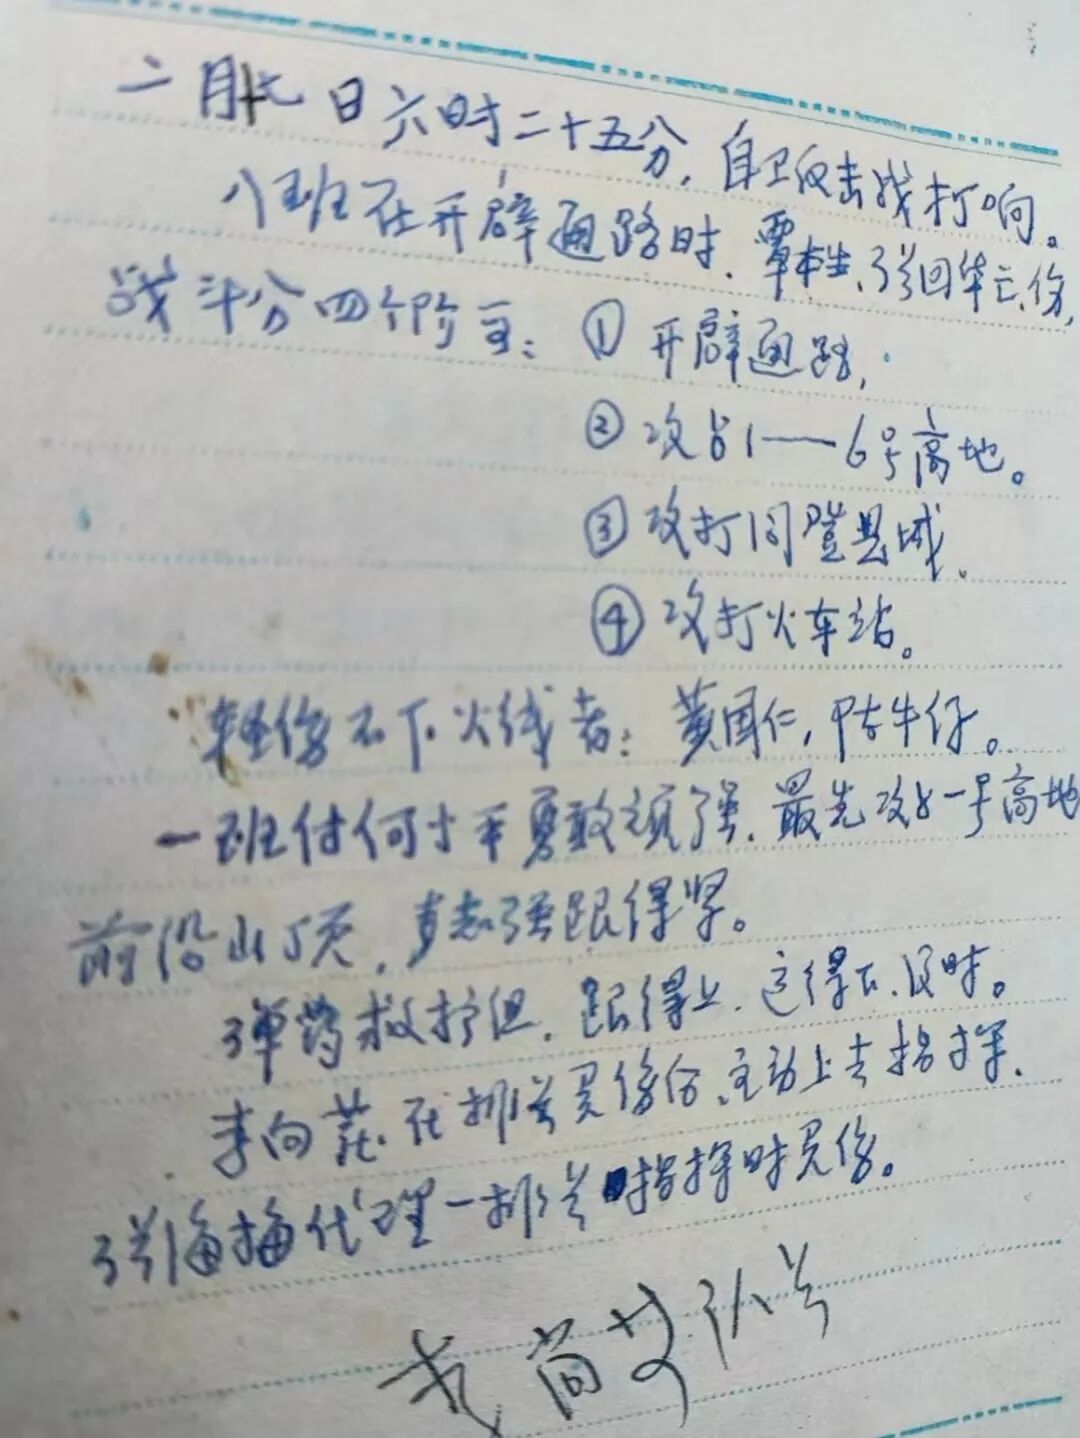 二月十七日六时二十五分，自卫反击战打响。
八班在开辟通路时、覃本生、张回华亡、伤，
战斗分四个阶言：①开辟通路，
②攻占1——6号高地。
③攻打同登县城、
④攻打火车站。
轻伤不下火线者：黄国仁，陈牛仔。
一班付何士平勇敢顽强、最先攻占一号高地
前沿山顶，志强跟得紧。
弹药救护组、跟得上、这得下、及时。
李向在排长负伤后、主动上去指挥、
张海梅代理一排长指挥时负伤。